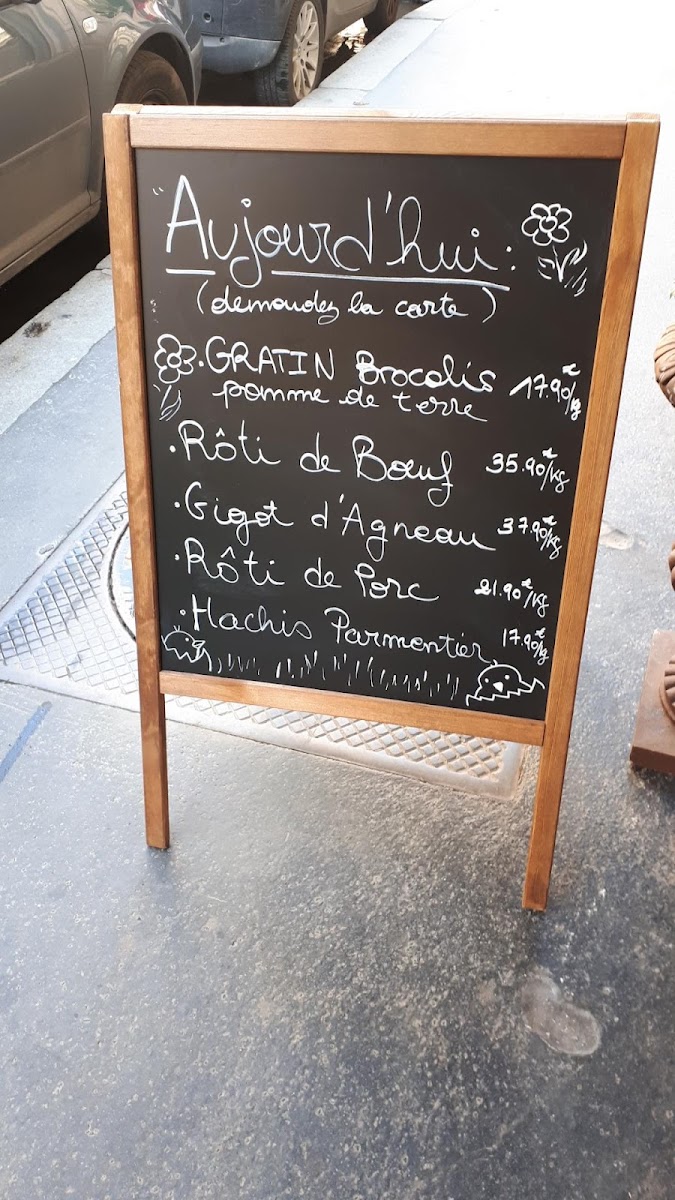 Aujourd'hui :
(demandez la carte)
. GRATIN Brocolis 17.90€/kg
pomme de terre
. Rôti de Bœuf 35.90€/kg
. Gigot d'Agneau 37.90€/kg
. Rôti de Porc 21.90€/kg
. Hachis Parmentier 17.90€/kg